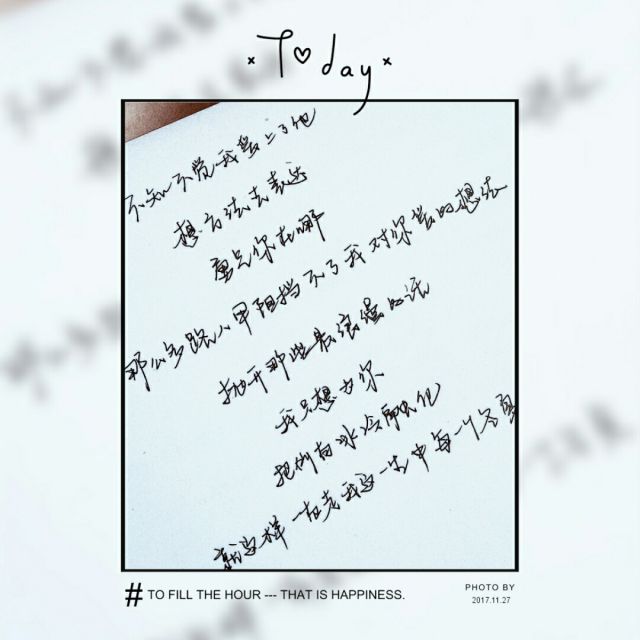 Today
不知不觉我爱上了他
想方法去表达
重点你在哪
那么多路人甲阻挡不了我对你爱的想法
抛开那些最浪漫的话
我只想为你
把所有冰冷融化
就这样 一直走我这一生中每一个
# TO FILL THE HOUR --- THAT IS HAPPINESS.
PHOTO BY
2017.11.27